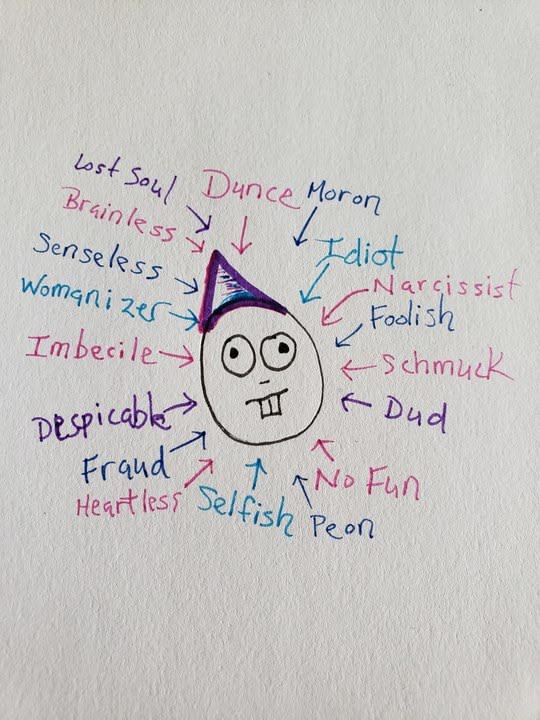 Lost Soul
Dunce
Moron
Brainless
Idiot
Senseless
Narcissist
Womanizer
Foolish
Imbecile
Schmuck
Despicable
Dud
Fraud
No Fun
Heartless
Selfish
Peon